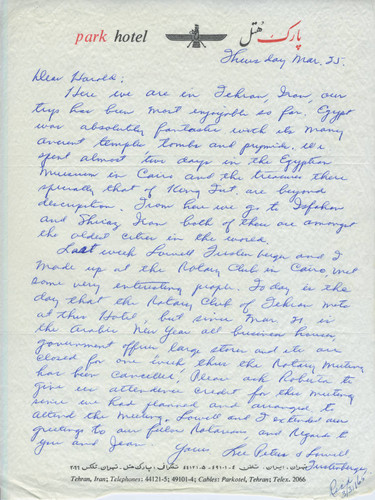 park hotel
پارک هتل
Thursday Mar. 25.
Dear Harold:
Here we are in Tehran, Iran, our
trip has been most enjoyable so far, Egypt
was absolutely fantastic with its many
ancient temples tombs and pyrmids. We
spent almost two days in the Egyption
Museum in Cairo and the treasures there
specially that of King Tut, are beyond
description. From here we go to Isfahan
and Shiraz Iran both of these are amongst
the oldest cities in the world.
Last week Lowell Fustenberger and I
made up at the Rotary Club in Cairo met
some very interesting people. Today is the
day that the Rotary Club of Tehran meets
at this Hotel, but since Mar. 21 is
the Arabic New Year all business houses,
government offices large stores and etc are
closed for one week, thus the Rotary Meeting
has been cancelled, Please ask Roberta to
give us attendence credit for this meeting
since we had planned and arranged to
attend the meeting. Lowell and I extend our
greetings to our fellow Rotarians and Regards to
you and Jean
Yours Lee Peters & Lowell
Tehran, Iran; Telephones: 44121-5; 49101-4; Cables: Parkotel, Tehran; Telex. 2066